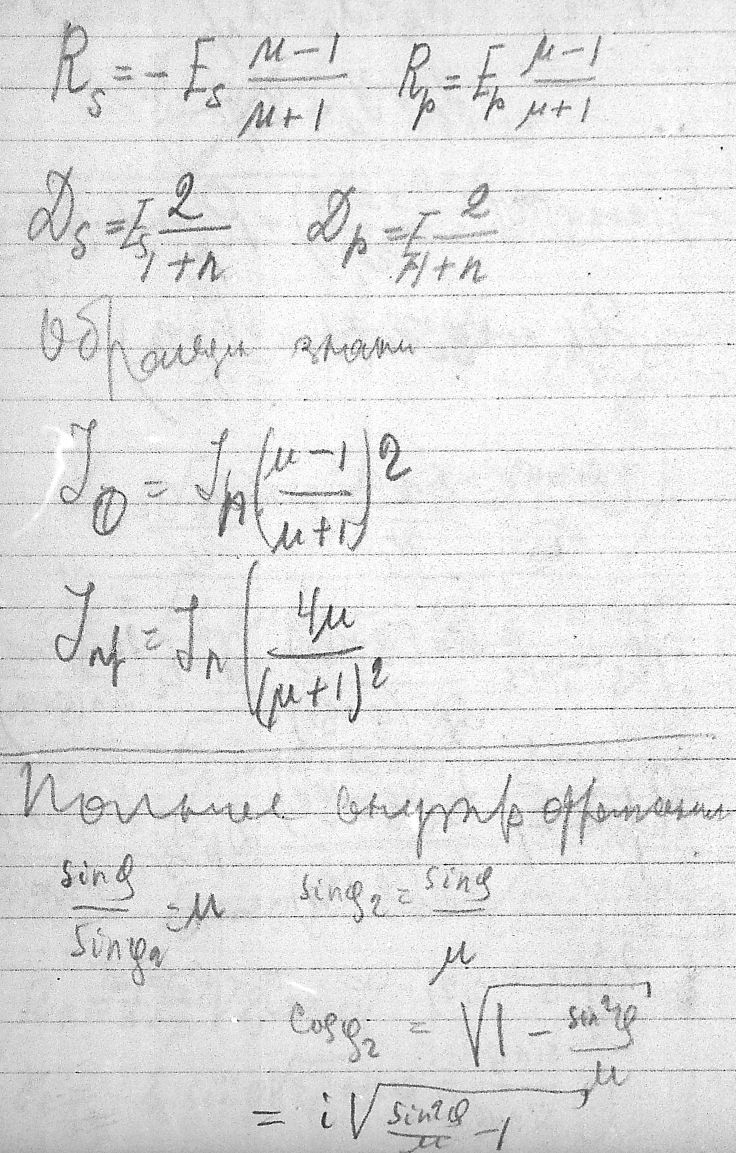 R_s = - E_s (μ-1)/(μ+1)   R_p = E_p (μ-1)/(μ+1)
D_s = E_s 2/(1+n)   D_p = E 2/(1+n)
знаки
J_0 = J_п ((μ-1)/(μ+1))^2
J_пр = J_п (4μ/(μ+1)^2
Полное внутр отражение
sinφ/sinφ_2 = μ   sinφ_2 = sinφ/μ
cosφ_2 = √(1 - sin^2φ/μ)
= i√(sin^2φ/μ - 1)